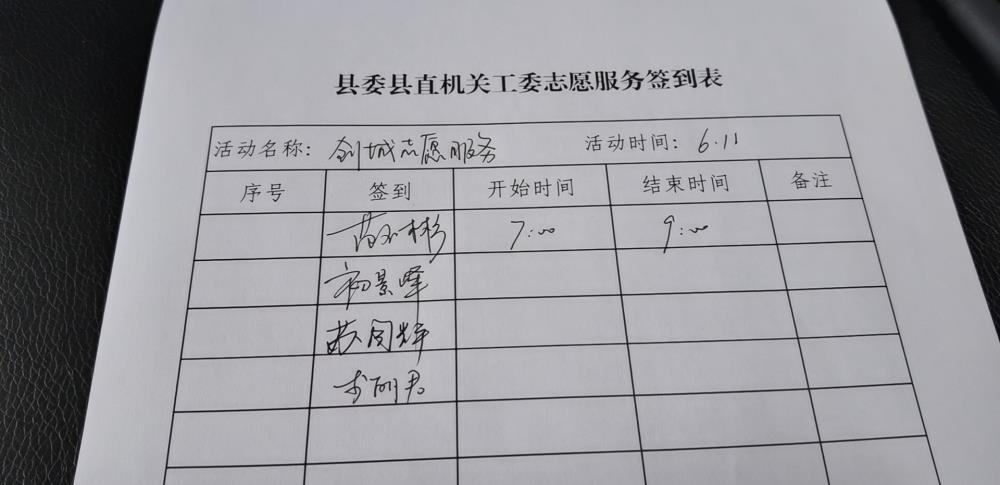 县委县直机关工委志愿服务签到表
活动名称：创城志愿服务 活动时间：6.11
序号 签到 开始时间 结束时间 备注
7:00 9:00
初景峰